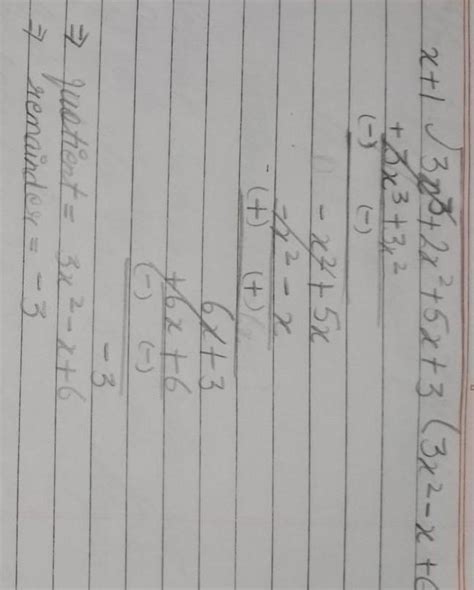 x+1 √3x³+2x²+5x+3 (3x²-x+6
+3x³+3x²
(-) (-)
-x²+5x
-x²-x
(+) (+)
6x+3
+6x+6
(-) (-)
-3
⇒ quotient = 3x²-x+6
⇒ remainder = -3